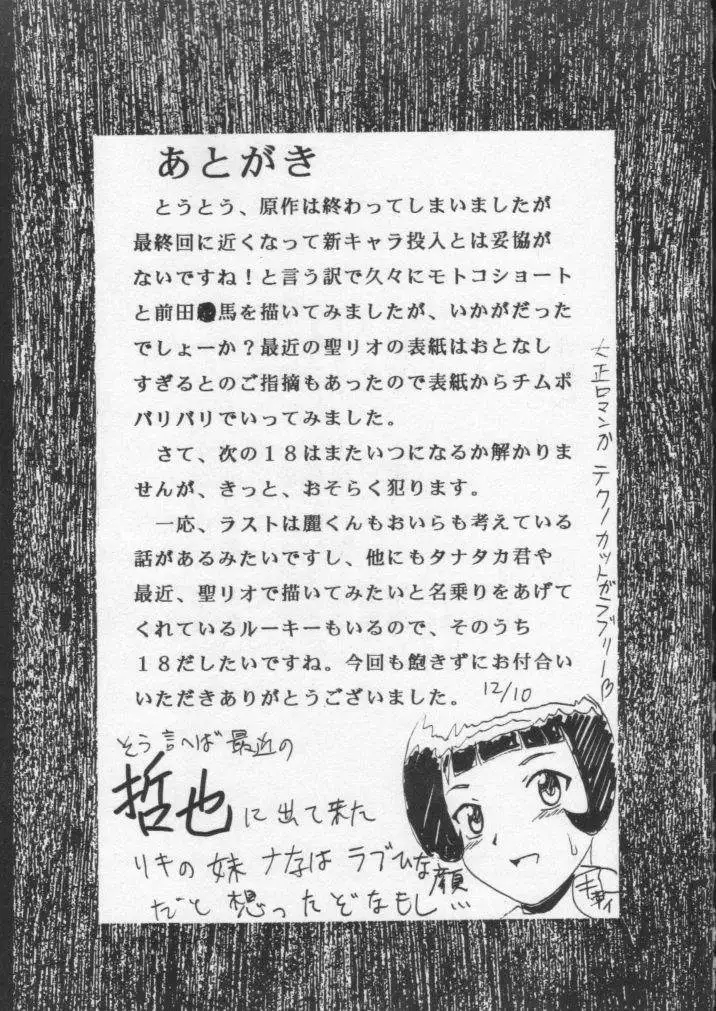 あとがき
とうとう、原作は終わってしまいましたが
最終回に近くなって新キャラ投入とは妥協が
ないですね！と言う訳で久々にモトコショート
と前田馬を描いてみましたが、いかがだった
でしょーか？最近の聖リオの表紙はおとなし
すぎるとのご指摘もあったので表紙からチムポ
バリバリでいってみました。
さて、次の１８はまたいつになるか解かりま
せんが、きっと、おそらく犯ります。
一応、ラストは麗くんもおいらも考えている
話があるみたいですし、他にもタナタカ君や
最近、聖リオで描いてみたいと名乗りをあげて
くれているルーキーもいるので、そのうち
１８だしたいですね。今回も飽きずにお付合い
いただきありがとうございました。
12/10
大正ロマンが テクノカットがラブリー♡
そう言へば最近の
哲也に出て来た
リキの妹ナナはラブひな顔
だと想ったぞなもし